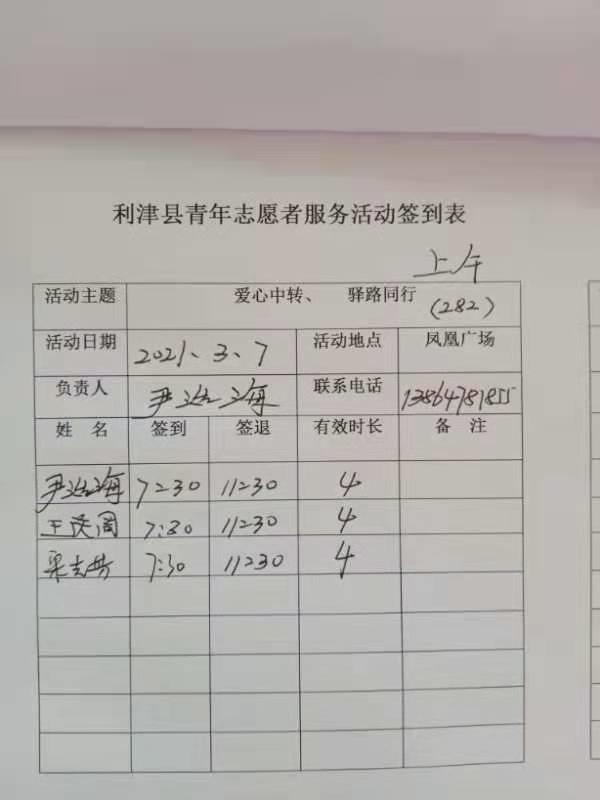 利津县青年志愿者服务活动签到表
上午
活动主题 爱心中转、 驿路同行 (282)
活动日期 2021、3、7 活动地点 凤凰广场
负责人 尹治海 联系电话 13864781855
姓 名 签到 签退 有效时长 备 注
尹治海 7:30 11:30 4
王 7:30 11:30 4
7:30 11:30 4